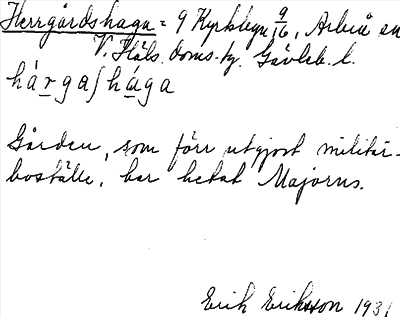 Herrgårdshagn = 9 Kyrkbyn 9/16, Arbrå sn
V. Häls. doms. tg. Gävleb. l.
hárgaʃhága
Gården, som förr utgjort militär-
boställe, har hetat Majorns.
Erik Eriksson 1931